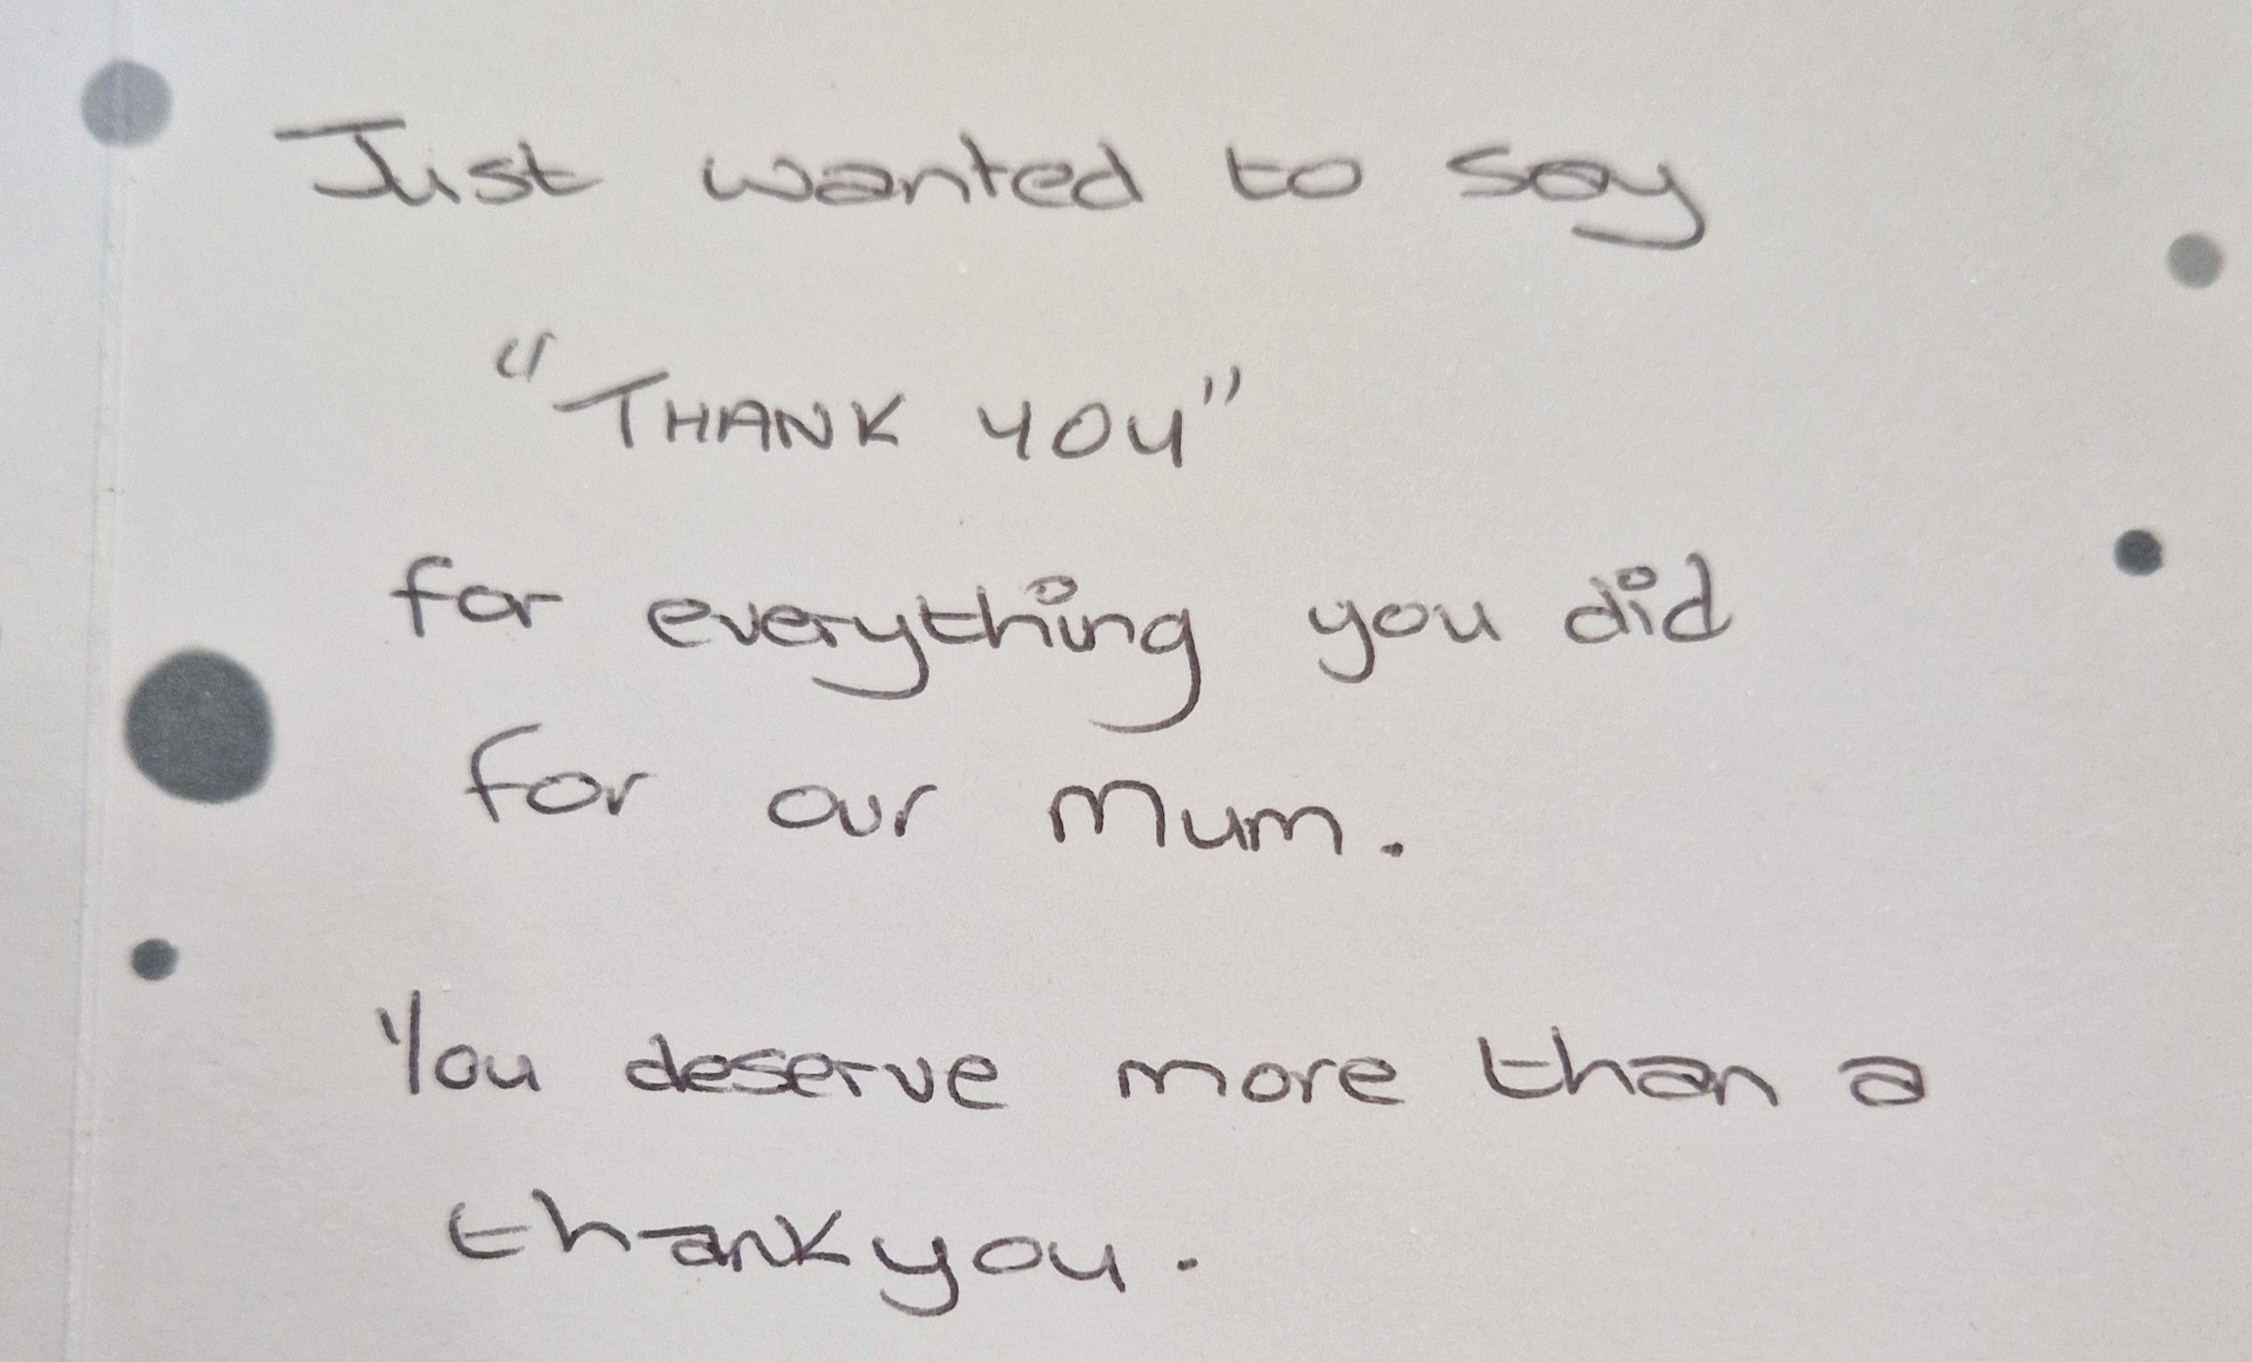 Just wanted to say
"THANK YOU"
for everything you did
for our Mum.
You deserve more than a
thankyou.